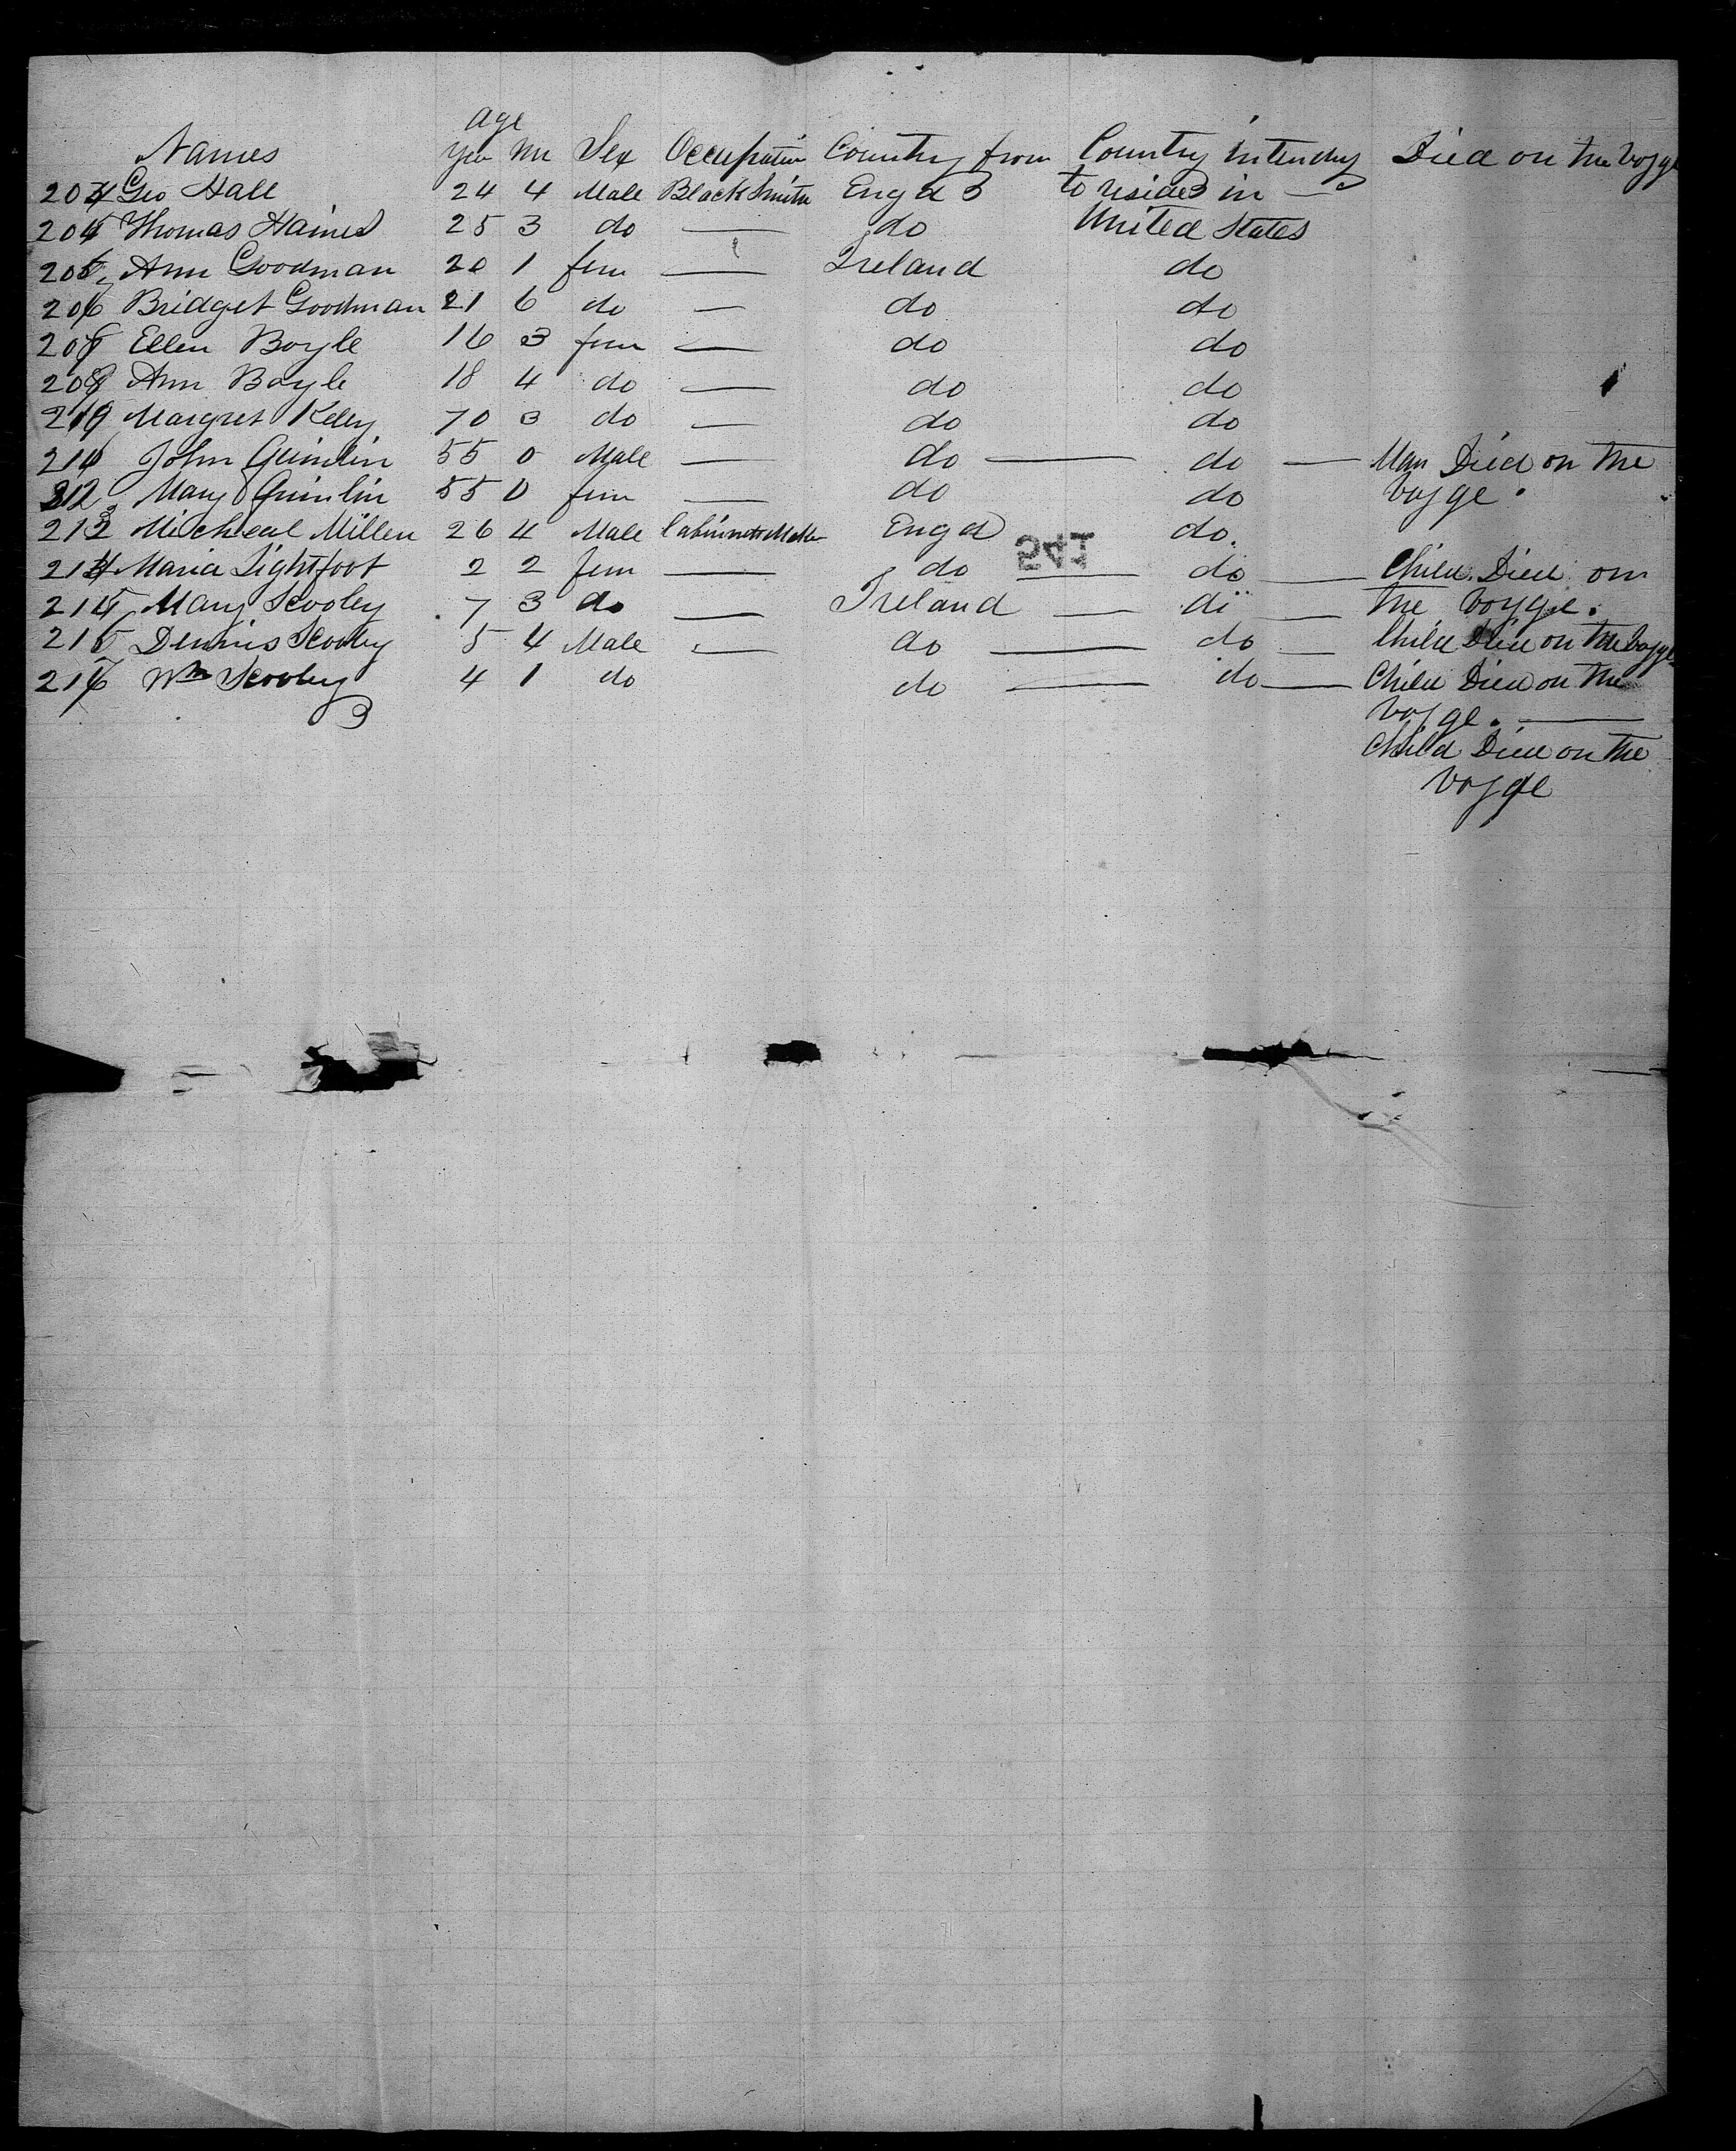 age
Names Yrs Mn Sex Occupation Country from Country intending Died on the Voyge
204 Geo Hall 24 4 Male BlackSmith Engd to reside in
205 Thomas Haines 25 3 do — do United States
206 Ann Goodman 20 1 fem — Ireland do
207 Bridget Goodman 21 6 do — do do
208 Ellen Boyle 16 3 fem — do do
209 Ann Boyle 18 4 do — do do
210 Margret Kelly 70 3 do — do do
211 John Quinlin 55 0 Male — do — do — Man Died on the
212 Mary Quinlin 55 0 fem — do do Voyge.
213 Micheal Millen 26 4 Male Cabinet Maker Engd do.
214 Maria Lightfoot 2 2 fem — do — do — Child Died on
215 Mary Scooley 7 3 do — Ireland — do — the Voyge.
216 Dennis Scooley 5 4 Male — do — do — Child Died on the Voyge
217 Wm Scooley 4 1 do do — do — Child Died on the
Voyge. —
Child Died on the
Voyge
241